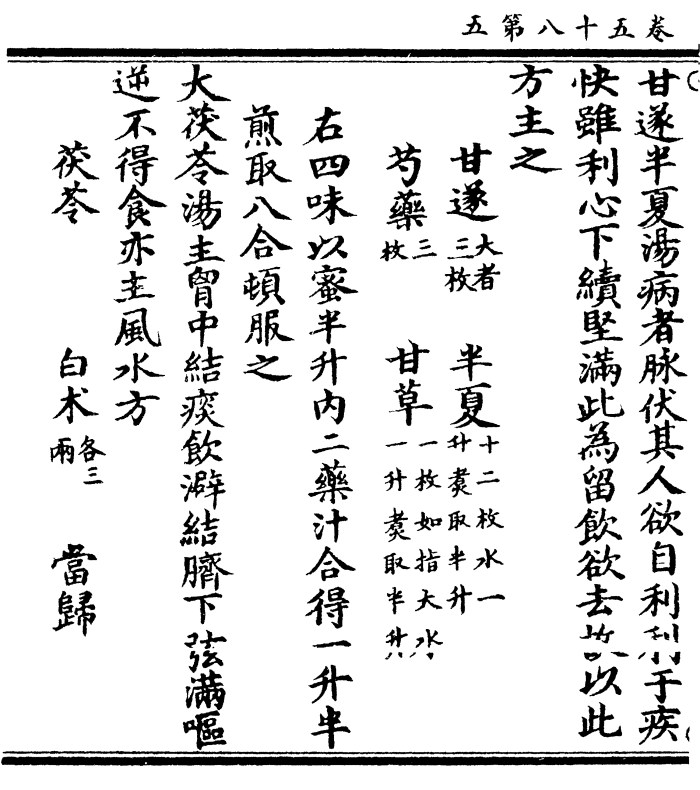 卷五十八第五
甘遂半夏湯病者脉伏其人欲自利利于疾
快雖利心下續堅滿此為留飲欲去故以此
方主之
甘遂大者三枚 半夏十二枚水一升煑取半升
芍藥三枚 甘草一枚如指大水一升煑取半升
右四味以蜜半升内二藥汁合得一升半
煎取八合頓服之
大茯苓湯主胷中結痰飲澼結臍下弦滿嘔
逆不得食亦主風水方
茯苓 白术各三兩 當歸